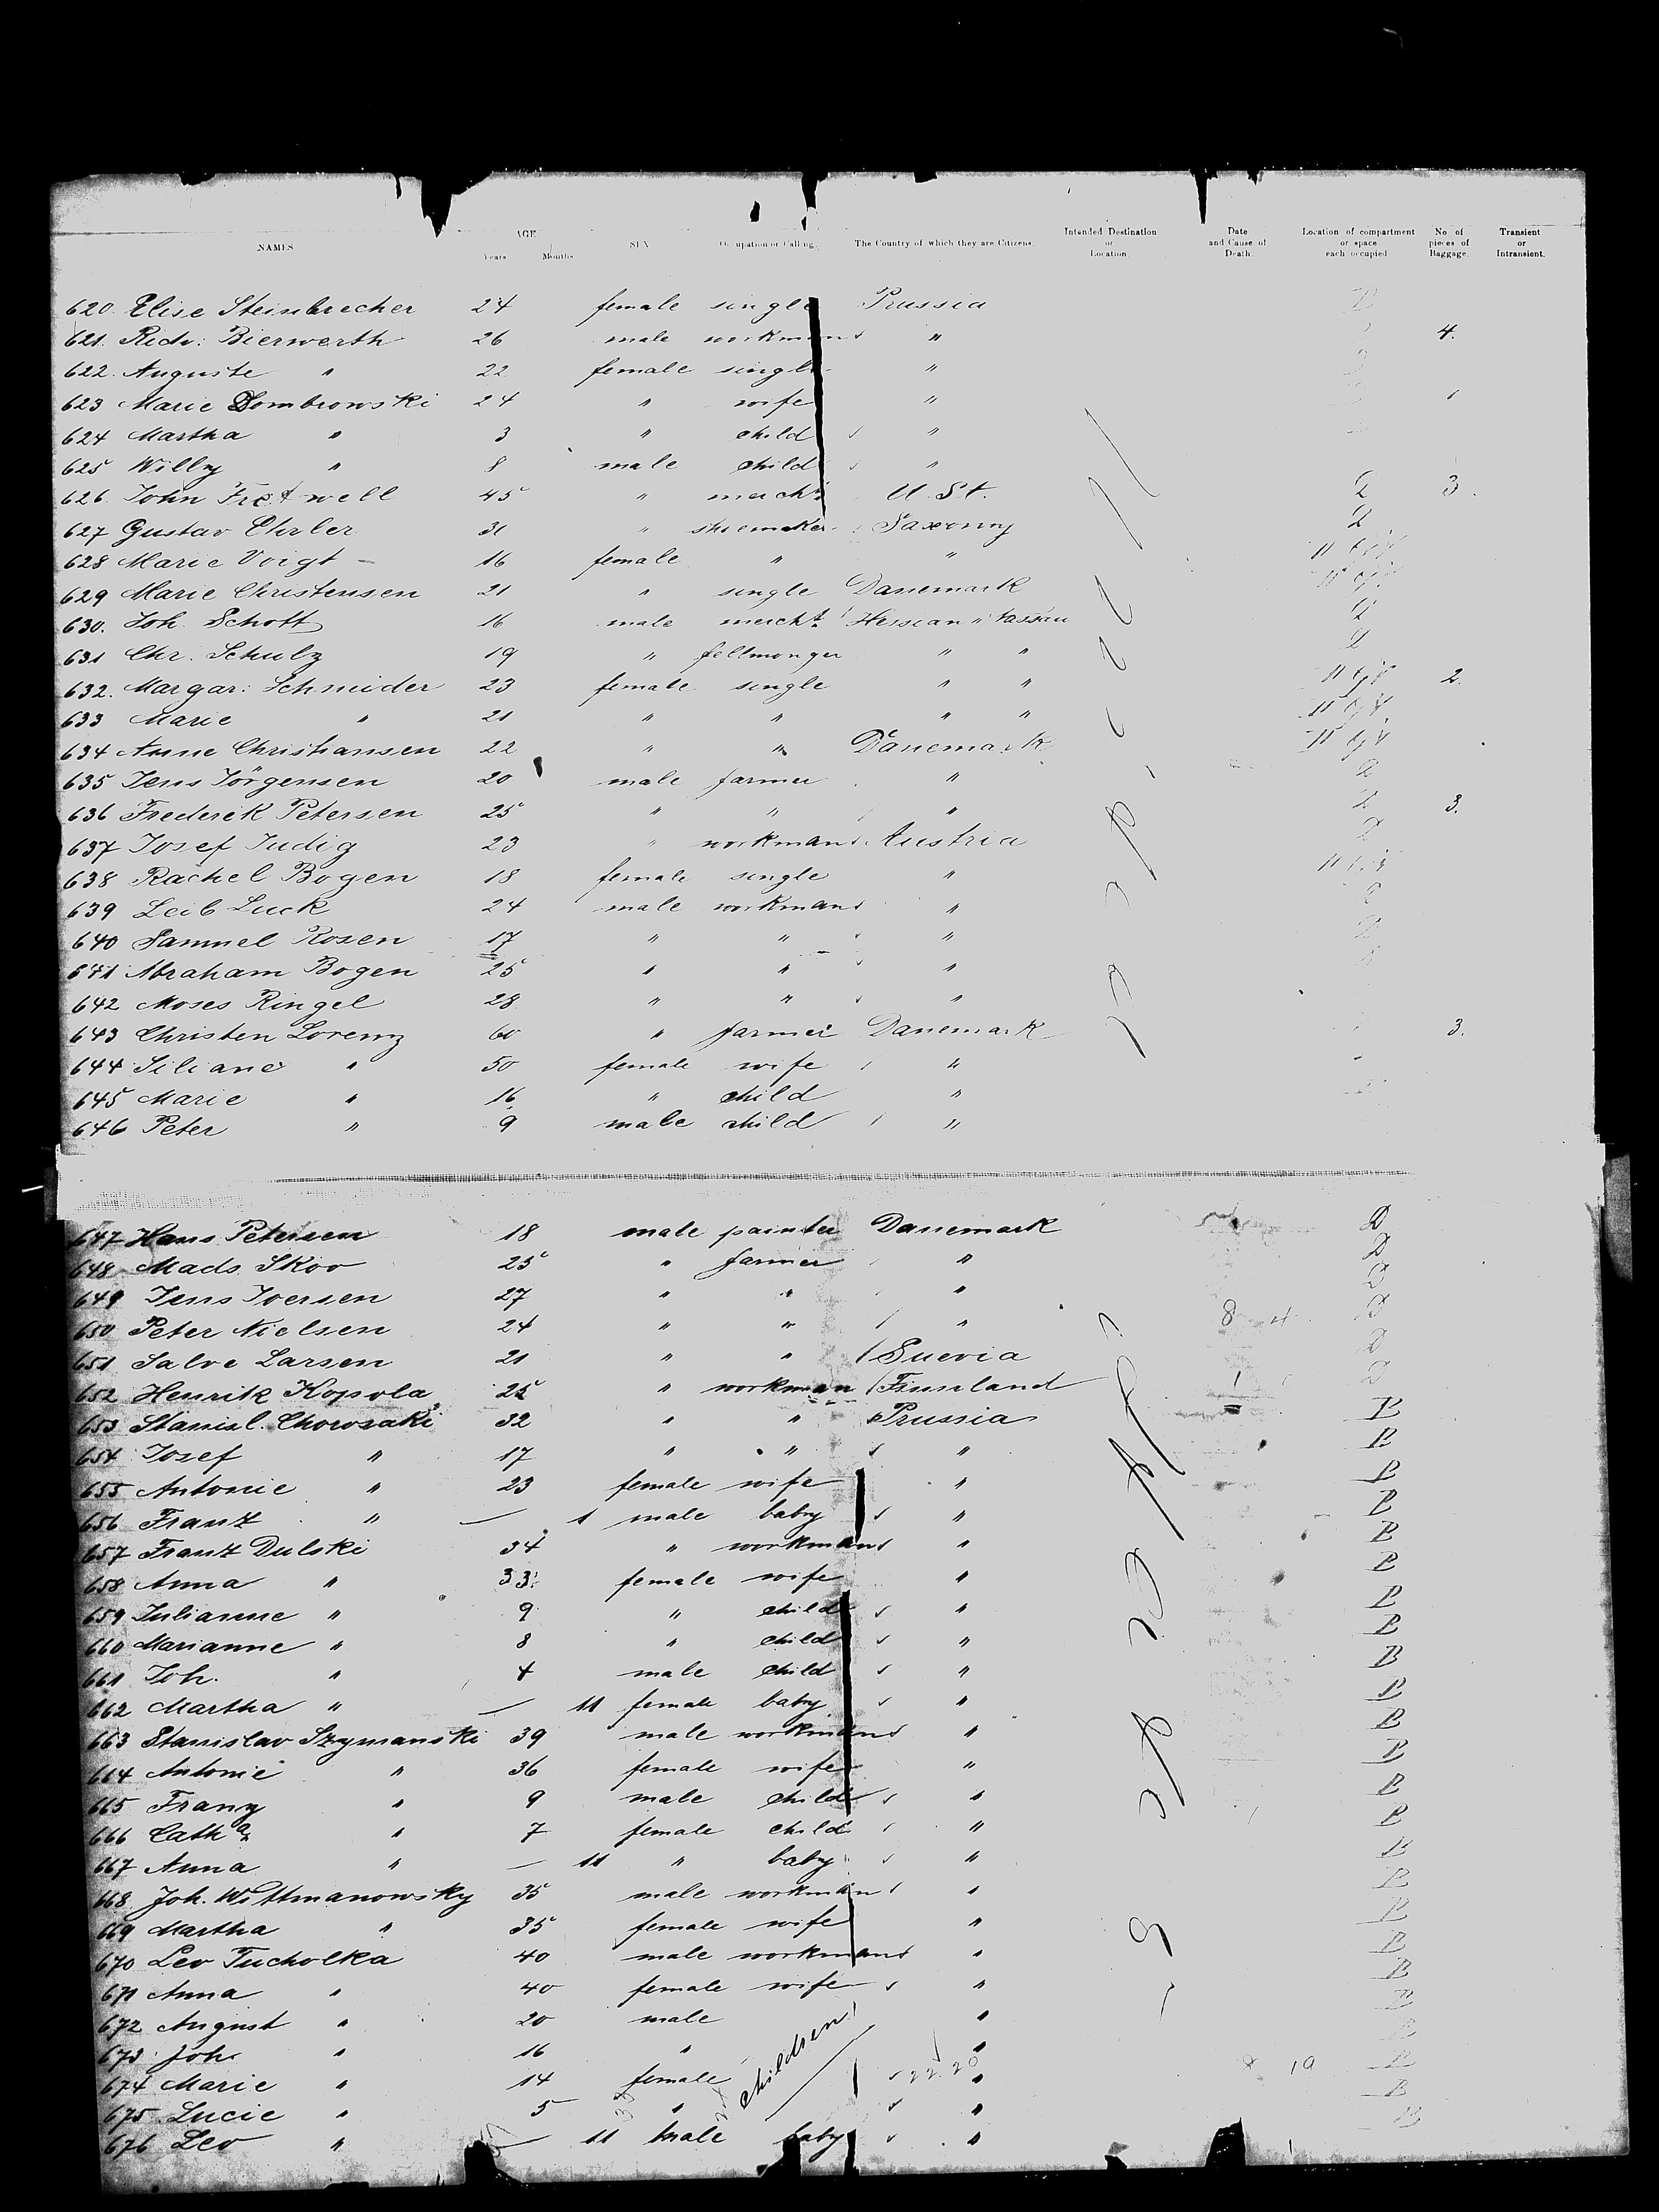 NAMES AGE Years Months SEX Occupation or Calling. The Country of which they are Citizens. Intended Destination or Location. Date and Cause of Death. Location of compartment or space each occupied No of pieces of Baggage. Transient or Intransient.
620. Elise Steinbrecher 24 female single Prussia
621. Rich: Bierwerth 26 male workman " 4.
622. Auguste " 22 female single "
623 Marie Dombrowski 24 " wife "
624 Martha " 3 " child "
625 Willy " 8 male child "
626. John Fretwell 45 " mercht. U. St. 3.
627 Gustav Ehrler 31 " shoemaker Saxonny
628 Marie Voigt 16 female " "
629 Marie Christensen 21 " single Danemark
630. Joh. Schott 16 male mercht. Hessian " Nassau
631 Chr. Schulz 19 " fellmonger " "
632. Margar: Schneider 23 female single " " 2.
633 Marie " 21 " " " "
634 Anne Christiansen 22 " " Danemark
635 Jens Jörgensen 20 male farmer "
636 Frederik Petersen 25 " " " 3.
637 Josef Judig 23 " workman Austria
638 Rachel Bogen 18 female single "
639 Leib Luck 24 male workman "
640 Samuel Rosen 17 " " "
641 Abraham Bogen 25 " " "
642 Moses Ringel 28 " " "
643 Christen Lorenz 60 " farmer Danemark 3.
644 Siliane " 50 female wife "
645 Marie " 16 " child "
646 Peter " 9 male child "
647 Hans Petersen 18 male painter Danemark D
648 Mads Skov 25 " farmer " D
649 Jens Iversen 27 " " " D
650 Peter Nielsen 24 " " " 8 4 D
651 Salve Larsen 21 " " Suevia D
652 Henrik Kopola 25 " workman Finnland D
653 Stanisl. Chorozaki 32 " " Prussia B
654 Josef " 17 " " " B
655 Antonie " 23 female wife " B
656 Franz " — 1 male baby " B
657 Franz Dulski 34 " workman " B
658 Anna " 33 female wife " B
659 Julianne " 9 " child " B
660 Marianne " 8 " child " B
661 Joh. " 4 male child " B
662 Martha " — 11 female baby " B
663 Stanislav Szymanski 39 male workman " B
664 Antonie " 36 female wife " B
665 Franz " 9 male child " B
666 Cath " 7 female child " B
667 Anna " — 11 " baby " B
668 Joh. Wittmanowsky 35 male workman " B
669 Martha " 35 female wife " B
670 Leo Tucholka 40 male workman " B
671 Anna " 40 female wife " B
672 August " 20 male children " B
673 Joh. " 16 " " B
674 Marie " 14 female " B
675 Lucie " 5 " " B
676 Leo " — 11 male baby " B